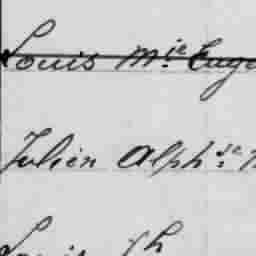 Louis M.ie Euge
Julien Alph.se
Louis Jh